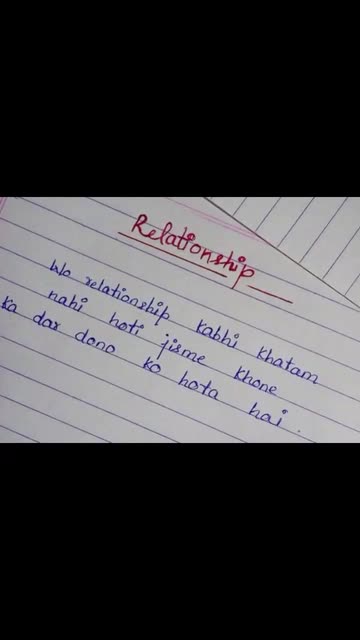 Relationship
Wo relationship kabhi khatam
nahi hoti jisme khone
ka dar dono ko hota hai.